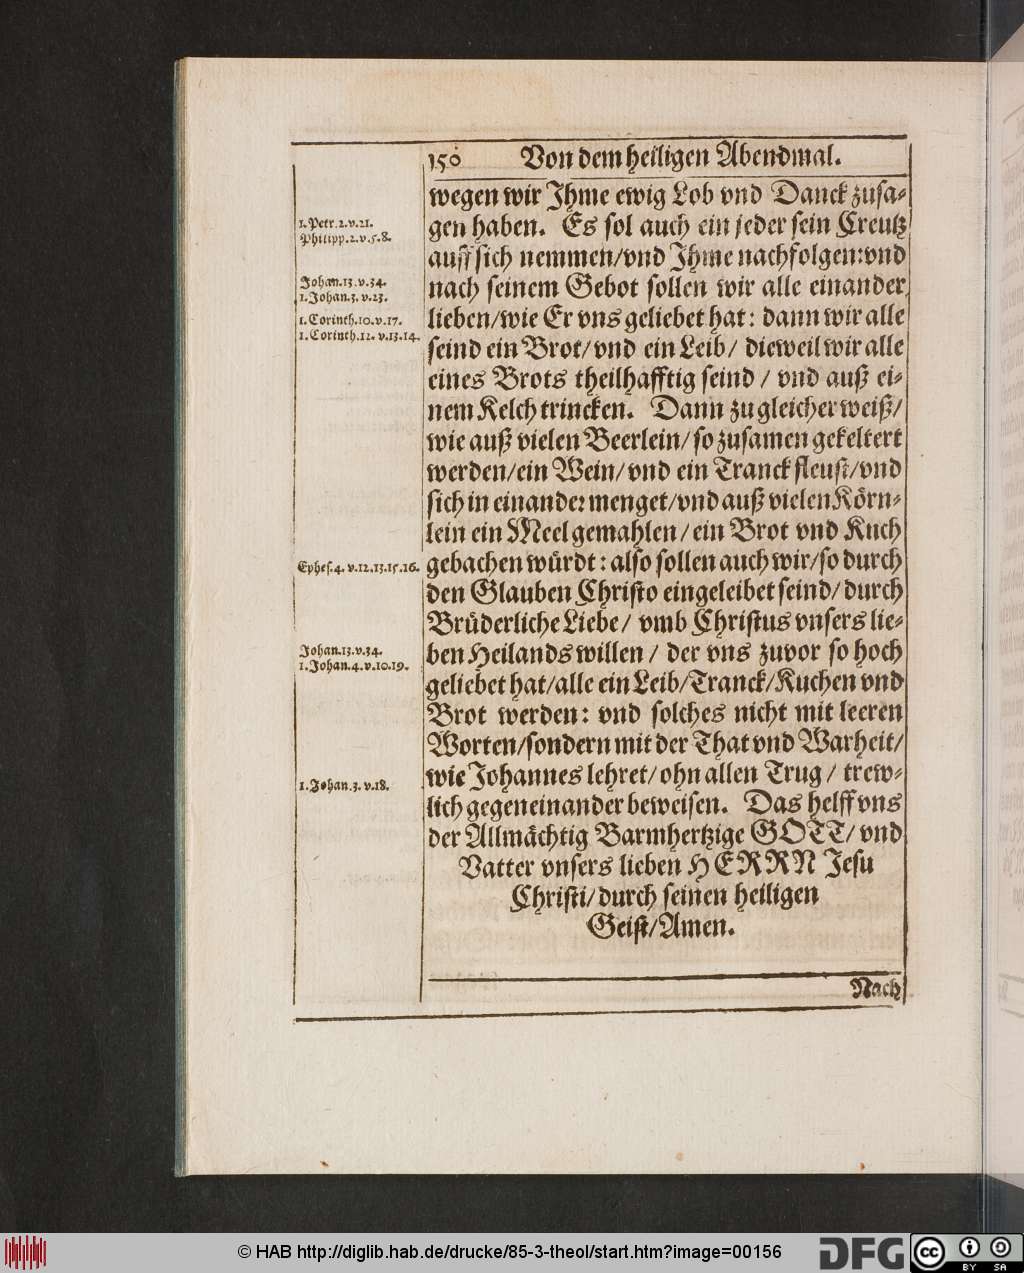 150 Von dem heiligen Abendmal.
wegen wir Ihme ewig Lob vnd Danck zusa-
gen haben. Es sol auch ein jeder sein Creutz
auff sich nemmen/vnd Ihme nachfolgen:vnd
nach seinem Gebot sollen wir alle einander
lieben/wie Er vns geliebet hat: dann wir alle
seind ein Brot/vnd ein Leib/ dieweil wir alle
eines Brots theilhafftig seind / vnd auß ei-
nem Kelch trincken. Dann zu gleicher weiß/
wie auß vielen Beerlein/so zusamen gekeltert
werden/ein Wein/vnd ein Tranck fleust/vnd
sich in einander menget/vnd auß vielen Körn-
lein ein Meel gemahlen/ein Brot vnd Kuch
gebachen würdt: also sollen auch wir/so durch
den Glauben Christo eingeleibet seind/durch
Brüderliche Liebe/ vmb Christus vnsers lie-
ben Heilands willen / der vns zuvor so hoch
geliebet hat/alle ein Leib/Tranck/Kuchen vnd
Brot werden: vnd solches nicht mit leeren
Worten/sondern mit der That vnd Warheit/
wie Johannes lehret/ohn allen Trug/ trew-
lich gegeneinander beweisen. Das helff vns
der Allmächtig Barmhertzige GOTT/ vnd
Vatter vnsers lieben HERRN Jesu
Christi/durch seinen heiligen
Geist/Amen.
Nach
1.Petr.2.v.21.
Philipp.2.v.5.8.
Johan.13.v.34.
1.Johan.3.v.23.
1.Corinth.10.v.17.
1.Corinth.12.v.13.14.
Ephes.4.v.12.13.15.16.
Johan.13.v.34.
1.Johan.4.v.10.19.
1.Johan.3.v.18.
© HAB http://diglib.hab.de/drucke/85-3-theol/start.htm?image=00156
DFG
cc BY SA